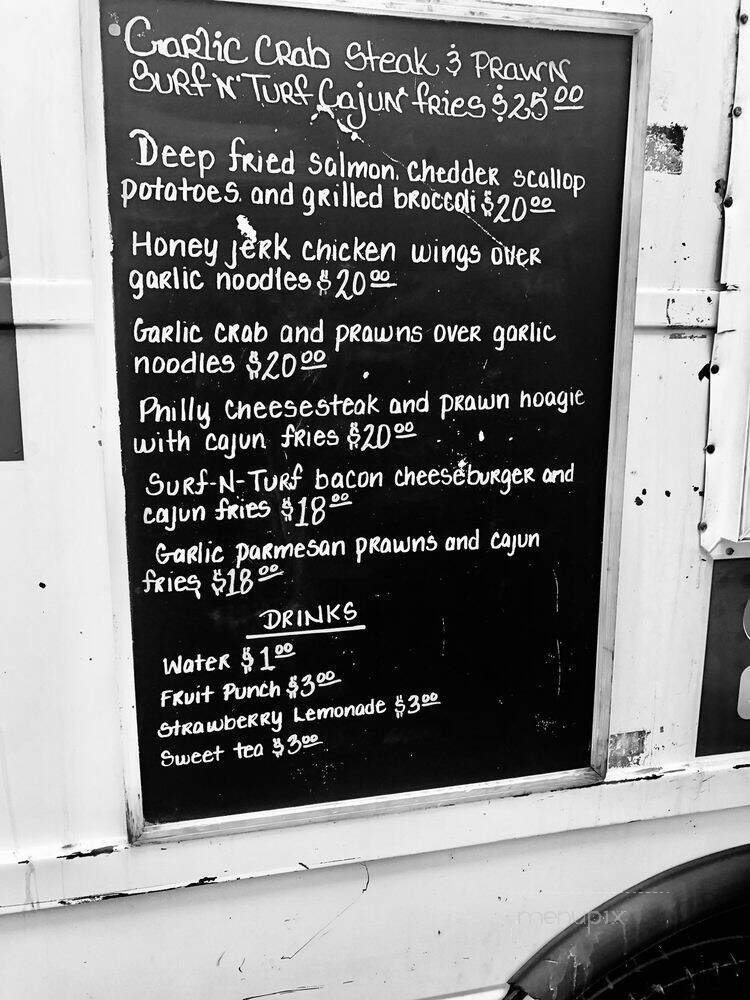 Garlic Crab Steak & Prawn
Surf'N'Turf Cajun fries $25.00
Deep fried salmon. chedder scallop
potatoes. and grilled broccoli $20.00
Honey jerk chicken wings over
garlic noodles $20.00
Garlic crab and prawns over garlic
noodles $20.00
Philly cheesesteak and prawn hoagie
with cajun fries $20.00
Surf-N-Turf bacon cheeseburger and
cajun fries $18.00
Garlic parmesan prawns and cajun
fries $18.00
DRINKS
Water $1.00
Fruit Punch $3.00
Strawberry Lemonade $3.00
Sweet tea $3.00
menupix